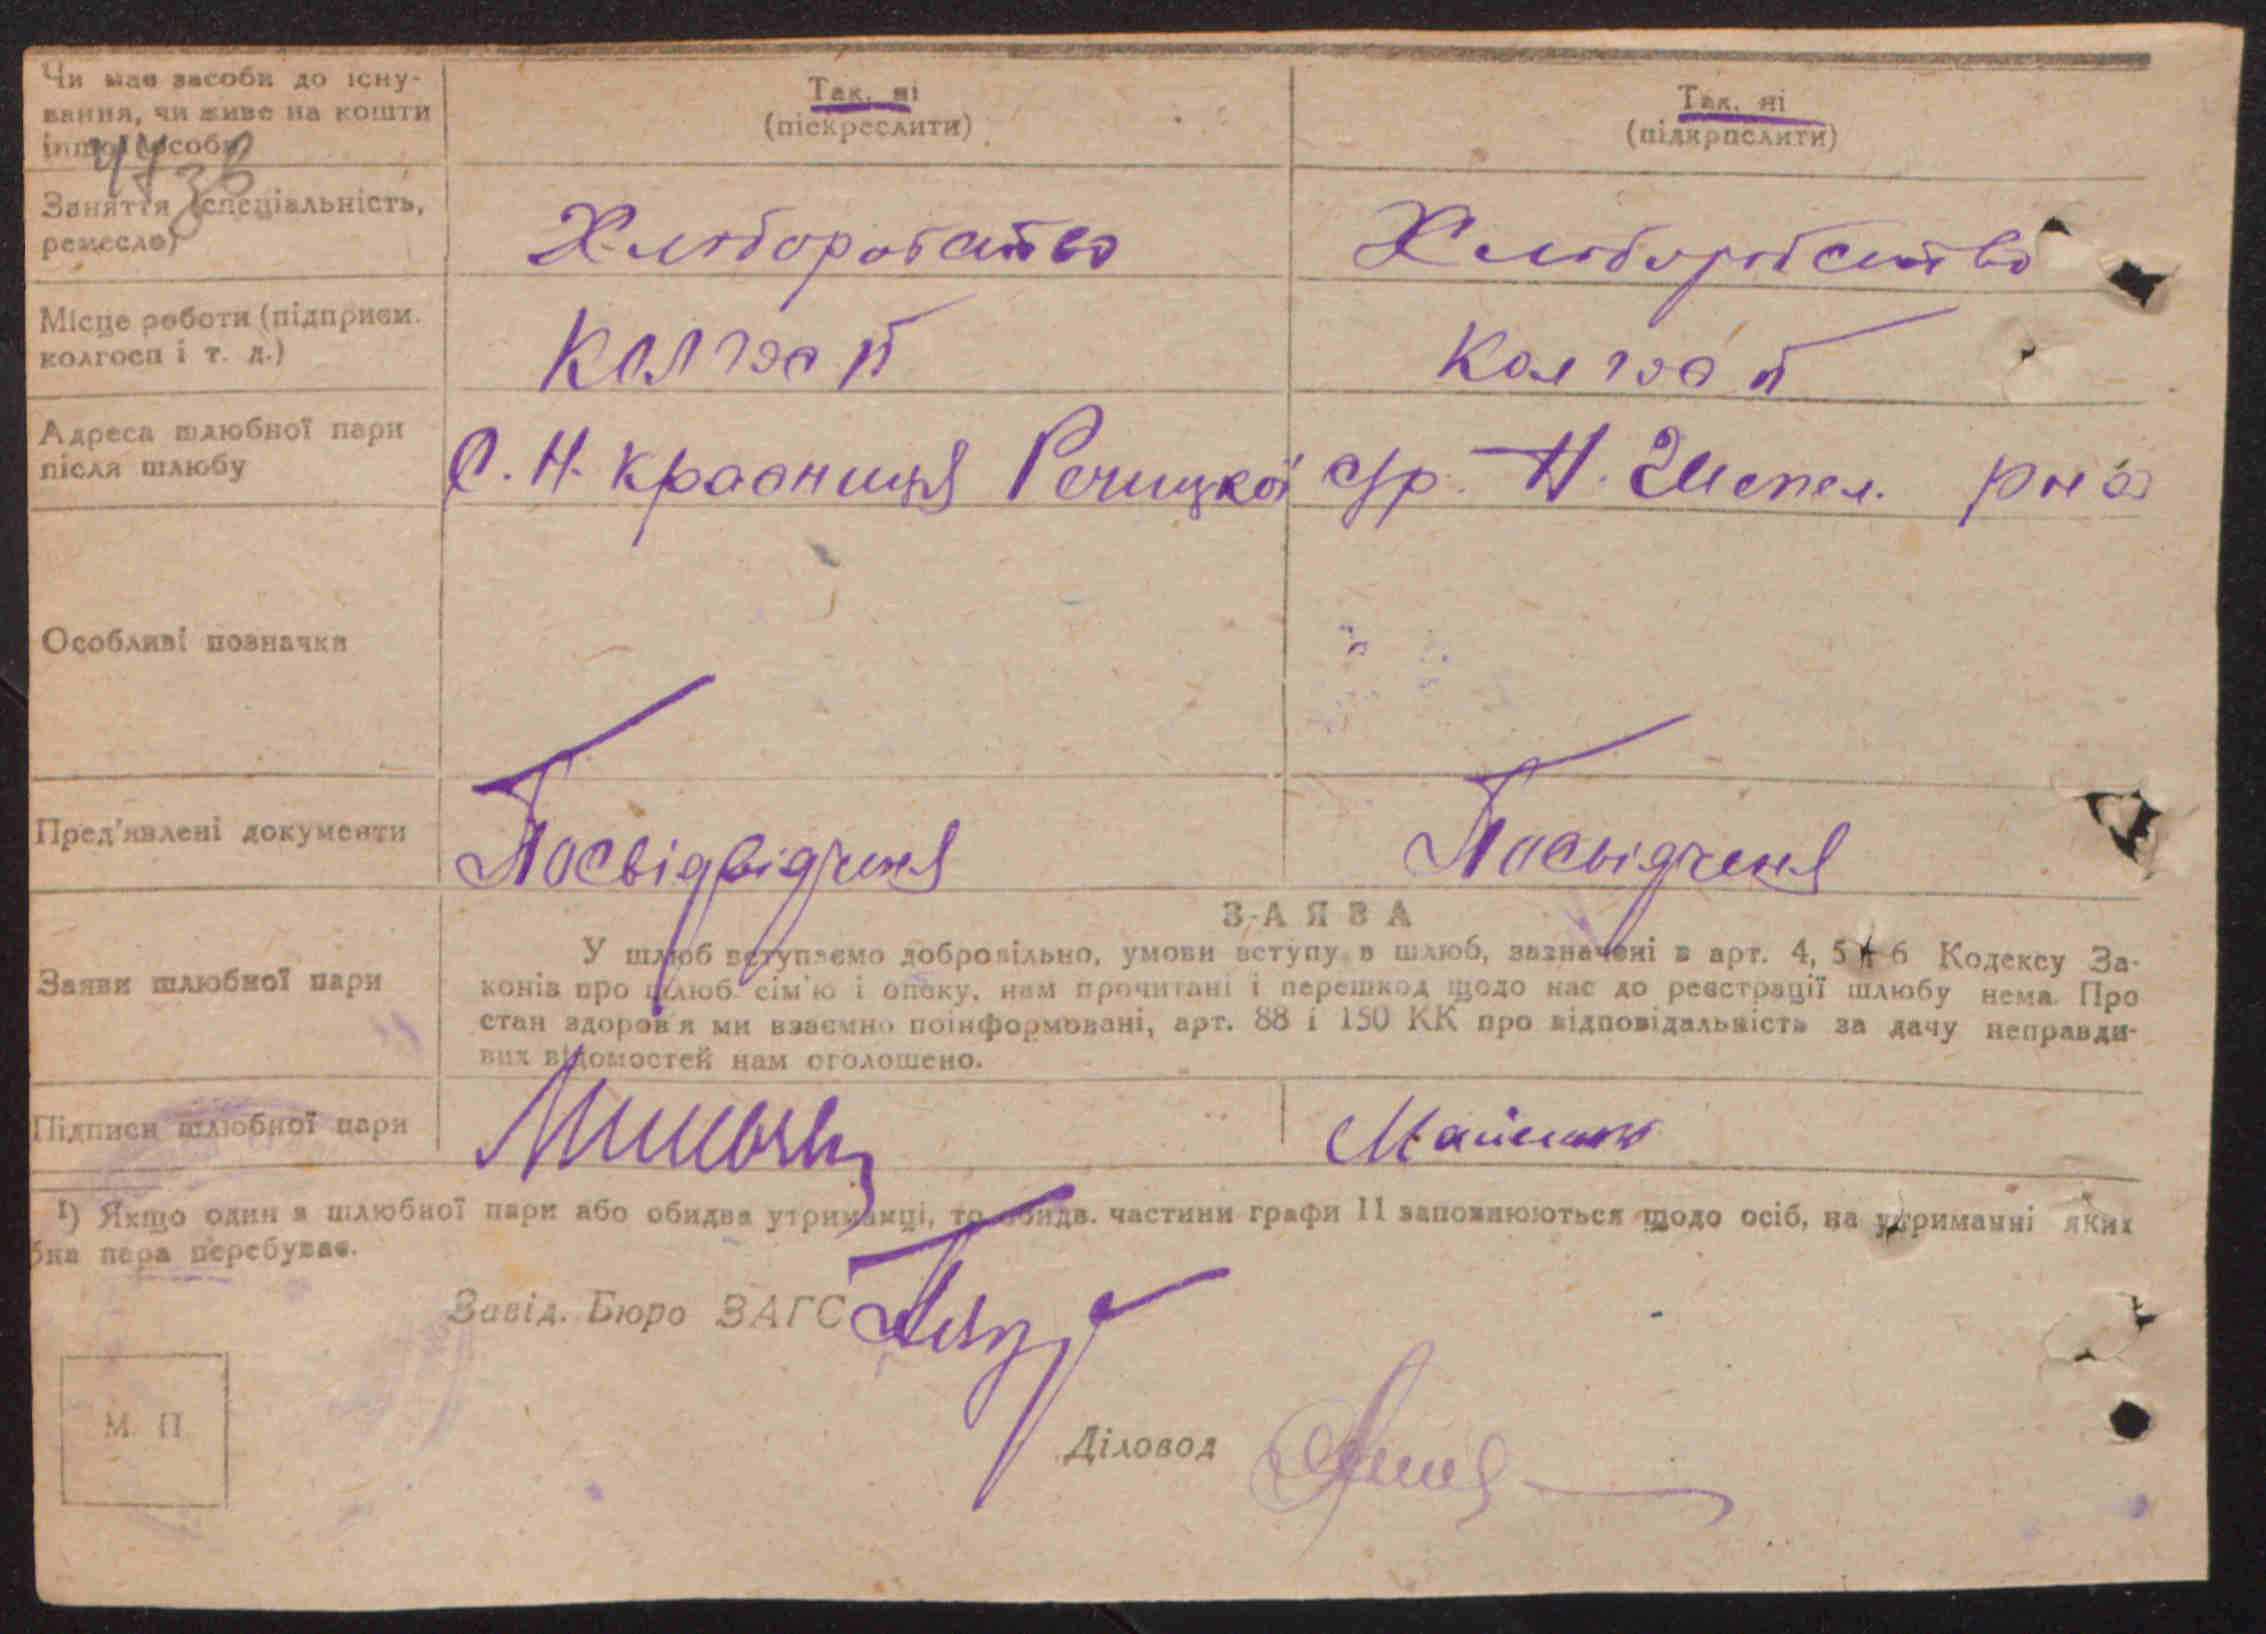 Чи має засоби до існу-
вання, чи живе на кошти
іншої особи
Так, ні
(піскреслити)
Так, ні
(підкрпслити)
47зв
Заняття (спеціальність,
ремесло)
Хліборобство
Хліборобство
Місце роботи (підприєм.
колгосп і т. д.)
Колгосп
Колгосп
Адреса шлюбної пари
після шлюбу
С. Н. Красниця Речицкої с/р. Н. Шепел. р-на
Особливі позначки
Пред'явлені документи
Посвідвідченя
Посвідченя
Заяви шлюбної пари
ЗАЯВА
У шлюб вступаємо добровільно, умови вступу в шлюб, зазначені в арт. 4, 5 і 6 Кодексу За-
конів про шлюб сім'ю і опоку, нам прочитані і перешкод щодо нас до реєстрації шлюбу нема. Про
стан здоров'я ми взаємно поінформовані, арт. 88 і 150 КК про відповідальність за дачу неправди-
вих відомостей нам оголошено.
Підписи шлюбної пари
¹) Якщо один з шлюбної пари або обидва утриманці, то обидв. частини графи 11 заповнюються щодо осіб, на утриманні яких
бна пара перебуває.
Завід. Бюро ЗАГС
Діловод
М. П.